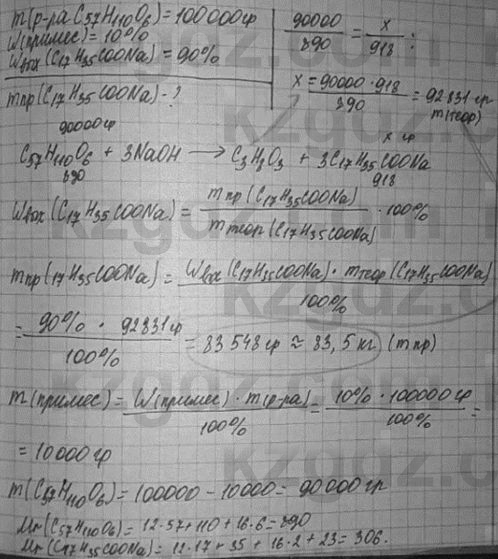 m(р-ра C57H110O6) = 100000 гр
W(примес) = 10%
Wвых (C17H35COONa) = 90%
mпр (C17H35COONa) - ?
90000/890 = x/918 ;
x = 90000 · 918/890 = 92831 гр
mтеор)
90000 гр x гр
C57H110O6 + 3NaOH → C3H8O3 + 3C17H35COONa
890 918
Wвых (C17H35COONa) = mпр (C17H35COONa)/mтеор (C17H35COONa) · 100%
mпр (17H35COONa) = Wвых (C17H35COONa) · mтеор (C17H35COONa)/100%
= 90% · 92831 гр/100% = 83548 гр ≈ 83,5 кг (mпр)
m(примес) = W(примес) · m(р-ра)/100% = 10% · 100000 гр/100% =
= 10000 гр
m(C57H110O6) = 100000 - 10000 = 90000 гр
Mr (C57H110O6) = 12·57 + 110 + 16·6 = 890
Mr (C17H35COONa) = 12·17 + 35 + 16·2 + 23 = 306.
kzgdz.com